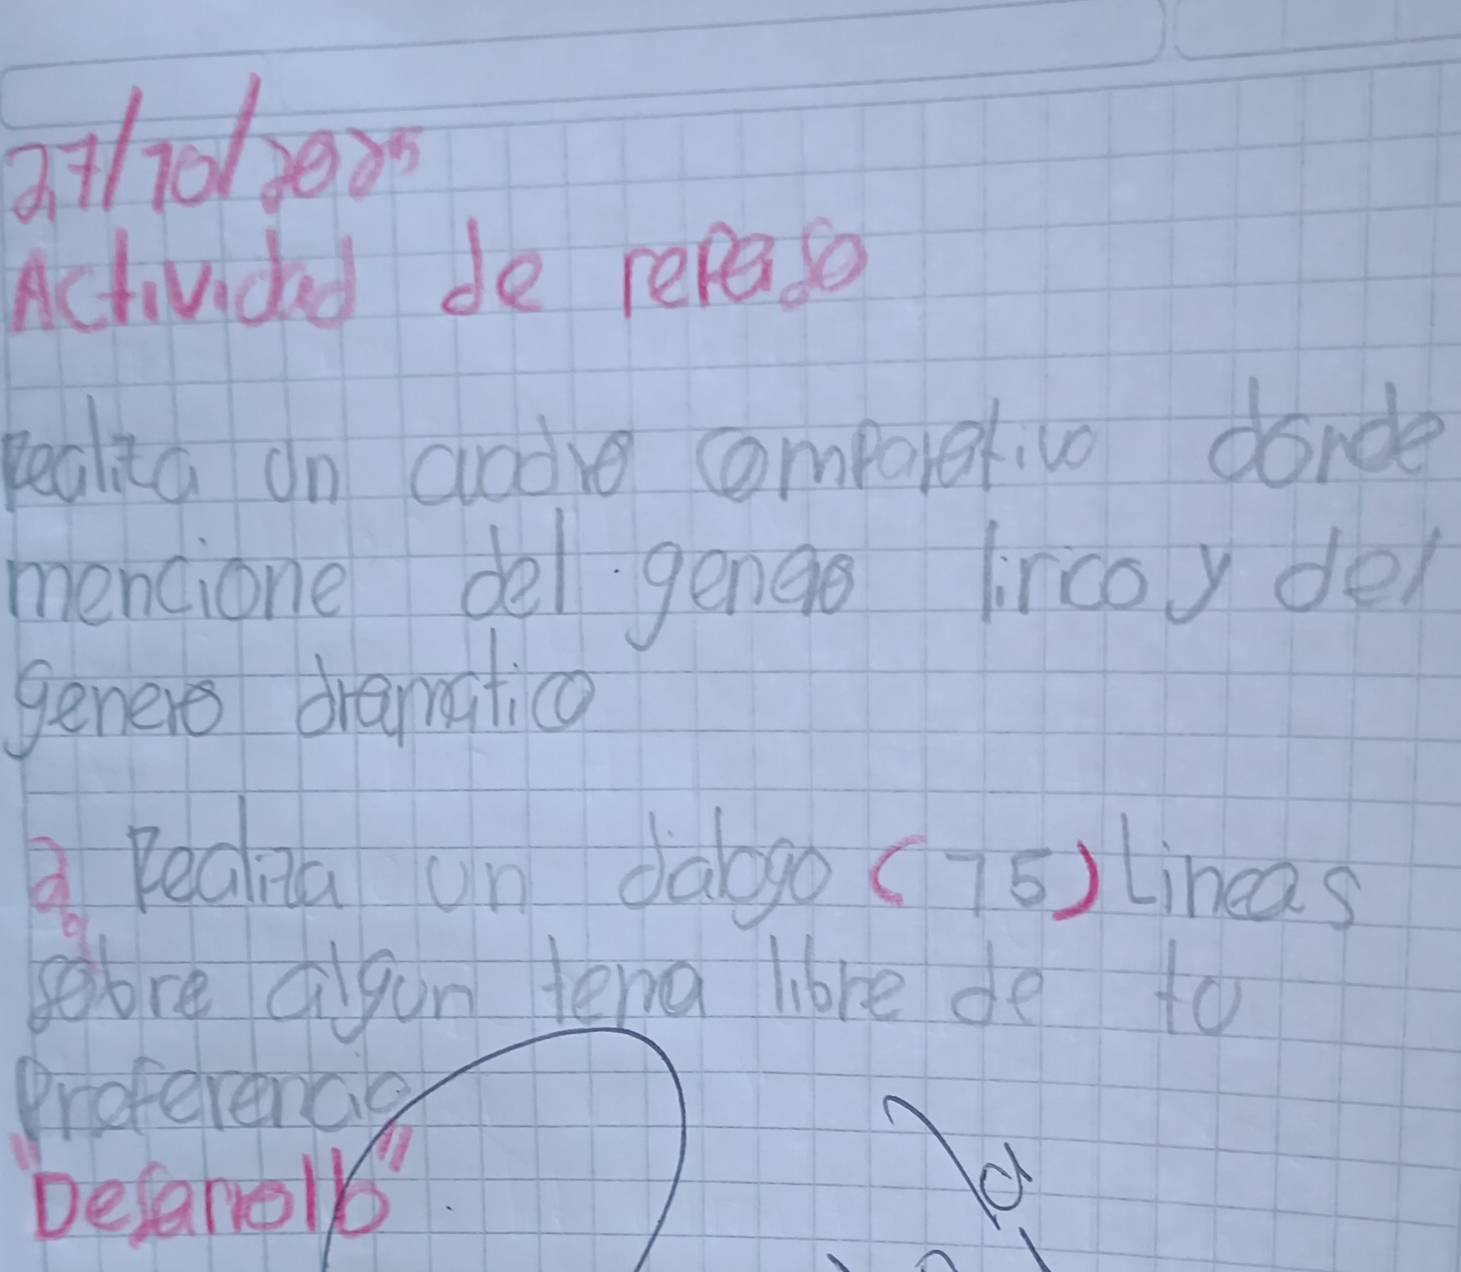 27/10/2025
Actividad de repaso
Realiza un cuadro comparativo donde
mencione del genero lirico y del
genero dramatico
2. Realiza un dialogo (15) Lineas
sobre algun tema libre de tu
Preferencia
"Desarrollo"